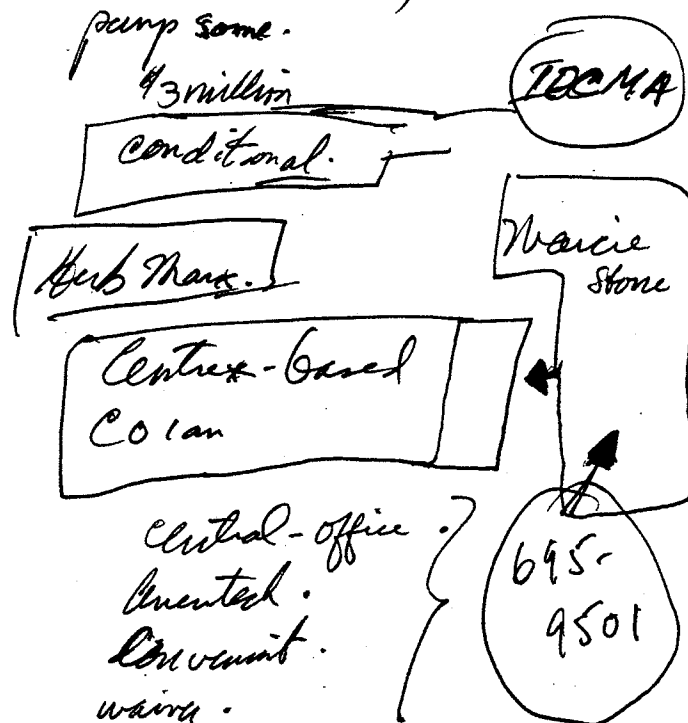 pump some.
$3 million
IDCMA
conditional.
Herb Marx.
Marcie
Stone
Centrex-based
CO lan
central-office.
Ameritech.
Convenient.
waiver.
695-
9501